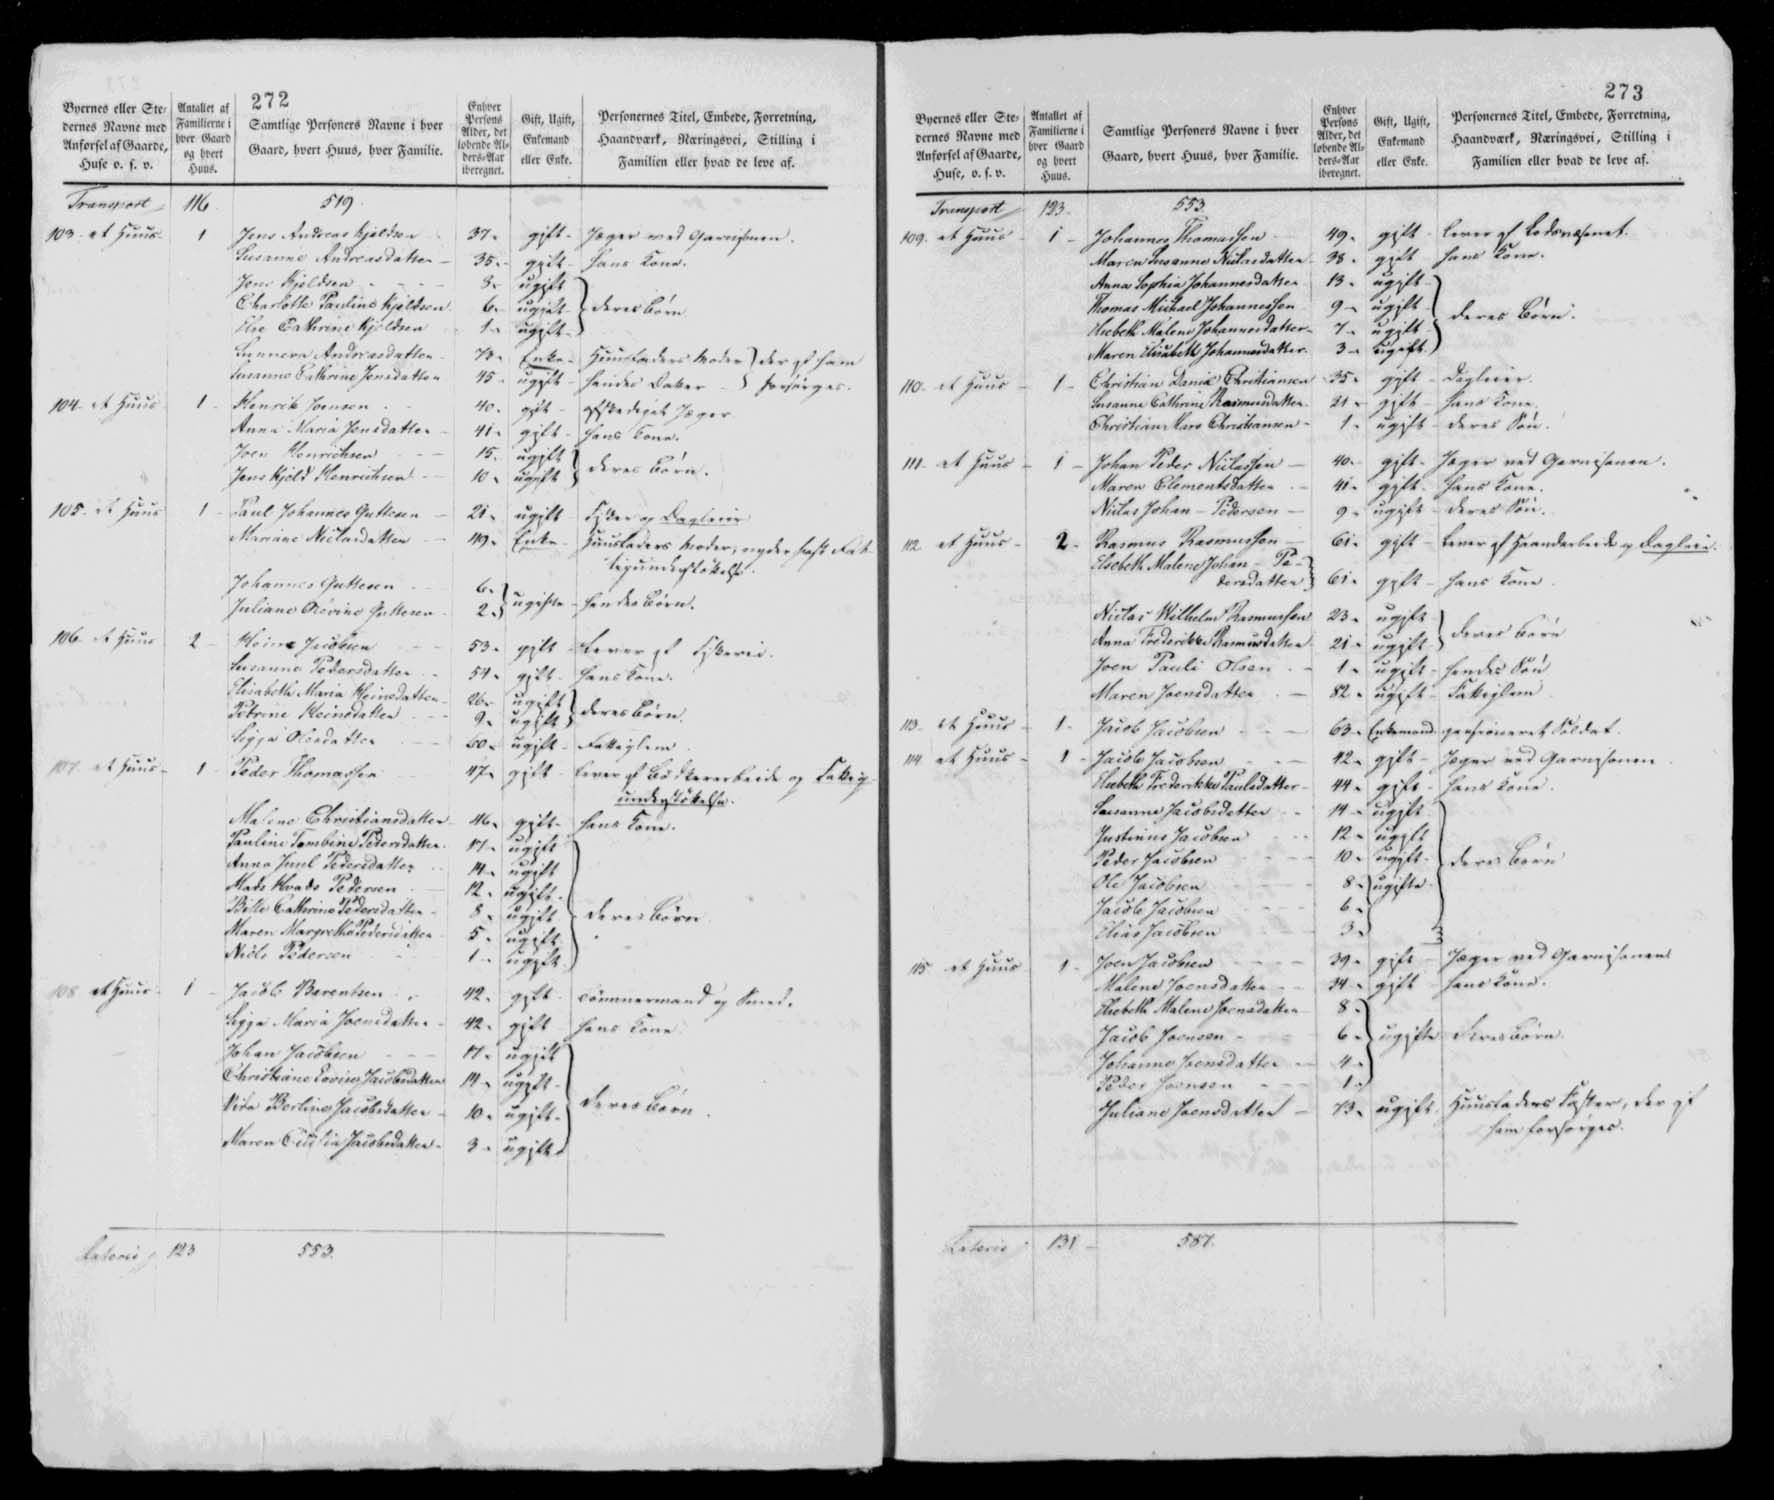 272
Byernes eller Ste-
dernes Navne med
Anførsel af Gaarde,
Huse o. s. v.
Antallet af
Familierne i
hver Gaard
og hvert
Huus.
Samtlige Personers Navne i hver
Gaard, hvert Huus, hver Familie.
Enhver
Persons
Alder, det
løbende Al-
ders-Aar
iberegnet.
Gift, Ugift,
Enkemand
eller Enke.
Personernes Titel, Embede, Forretning,
Haandværk, Næringsvei, Stilling i
Familien eller hvad de leve af.
Transport 116. 519.
103. et Huus 1 Jens Andreas Kjeldsen 37 gift Jæger ved Garnisonen.
Susanne Andreasdatter 35 gift hans Kone.
Jens Kjeldsen 8 ugift
Charlotte Pauline Kjeldsen 6 ugift deres Børn
Else Cathrine Kjeldsen 1 ugift
Sunneva Andreasdatter 73 Enke Huusfaders Moder der af ham
Susanne Cathrine Jensdatter 45 ugift hendes Datter forsørges.
104 et Huus 1 Henrik Joensen 40 gift afskediget Jæger
Anna Maria Jensdatter 41 gift hans Kone.
Joen Henrichsen 15 ugift
Jens Kjeld Henrichsen 10 ugift deres Børn.
105 et Huus 1 Paul Johannes Guttesen 21 ugift Fisker og Dagleier
Mariane Niclasdatter 49 Enke Huusfaders Moder, nyder fast Fat-
tigunderstøttelse.
Johannes Guttesen 6
Juliane Guttesen 2 ugifte hendes Børn.
106 et Huus 2 Heine Jacobsen 53 gift Lever af Fiskerie.
Susanne Pedersdatter 54 gift hans Kone.
Elisabeth Maria Heinesdatter 26 ugift
Petrine Heinesdatter 9 ugift deres Børn.
Sigga Olesdatter 60 ugift Fattiglem
107 et Huus 1 Peder Thomassen 47 gift Lever af Bødkerarbeide og Fattig-
understøttelse.
Malene Christiansdatter 46 gift hans Kone.
Pauline Pedersdatter 17 ugift
Anna Juul Pedersdatter 14 ugift
Mads Pedersen 12 ugift
Bille Cathrine Pedersdatter 8 ugift deres Børn.
Maren Margretha Pedersdatter 5 ugift
Niels Pedersen 1 ugift
108 et Huus 1 Jacob Berentsen 42 gift Tømmermand og Smed.
Sigga Maria Joensdatter 42 gift hans Kone
Johan Jacobsen 17 ugift
Christiane Jacobsdatter 14 ugift
Berline Jacobsdatter 10 ugift deres Børn.
Maren Cicilia Jacobsdatter 3 ugift
Lateris 123 553.
273
Byernes eller Ste-
dernes Navne med
Anførsel af Gaarde,
Huse, o. s. v.
Antallet af
Familierne i
hver Gaard
og hvert
Huus.
Samtlige Personers Navne i hver
Gaard, hvert Huus, hver Familie.
Enhver
Persons
Alder, det
løbende Al-
ders-Aar
iberegnet.
Gift, Ugift,
Enkemand
eller Enke.
Personernes Titel, Embede, Forretning,
Haandværk, Næringsvei, Stilling i
Familien eller hvad de leve af.
Transport 123. 553
109. et Huus 1 Johannes Thomassen 49 gift Lever af Lodsvæsenet.
Maren Susanne Niclasdatter 38 gift hans Kone.
Anna Sophia Johannesdatter 13 ugift
Thomas Michael Johannessen 9 ugift
Elsebeth Malene Johannesdatter 7 ugift deres Børn.
Maren Elisabeth Johannesdatter 3 ugift
110. et Huus 1 Christian Daniel Christiansen 35 gift Dagleier.
Susanne Cathrine Rasmusdatter 21 gift hans Kone.
Christian Christiansen 1 ugift deres Søn.
111 et Huus 1 Johan Peder Niclassen 40 gift Jæger ved Garnisonen.
Maren Clementsdatter 41 gift hans Kone.
Niclas Johan-Pedersen 9 ugift deres Søn.
112 et Huus 2 Rasmus Rasmussen 61 gift Lever af Haandarbeide og Dagleie.
Elsebeth Malene Johan-Pe-
dersdatter 61 gift hans Kone.
Niclas Wilhelm Rasmussen 23 ugift
Anna Frederikke Rasmusdatter 21 ugift deres Børn
Joen Pauli Olsen 1 ugift hendes Søn
Maren Joensdatter 82 ugift Fattiglem
113. et Huus 1 Jacob Jacobsen 63 Enkemand pensioneret Soldat.
114 et Huus 1 Jacob Jacobsen 42 gift Jæger ved Garnisonen
Elsebeth Frederikke Paulsdatter 44 gift hans Kone.
Susanne Jacobsdatter 14 ugift
Justinus Jacobsen 12 ugift
Peder Jacobsen 10 ugift deres Børn
Ole Jacobsen 8 ugifte
Jacob Jacobsen 6
Elias Jacobsen 3
115 et Huus 1 Joen Jacobsen 39 gift Jæger ved Garnisonen
Malene Joensdatter 34 gift hans Kone.
Elsebeth Malene Joensdatter 8
Jacob Joensen 6 ugifte deres Børn.
Johanne Joensdatter 4
Peder Joensen 1
Juliane Joensdatter 73 ugift Huusfaders Faster, der af
ham forsørges.
Lateris 131 587.